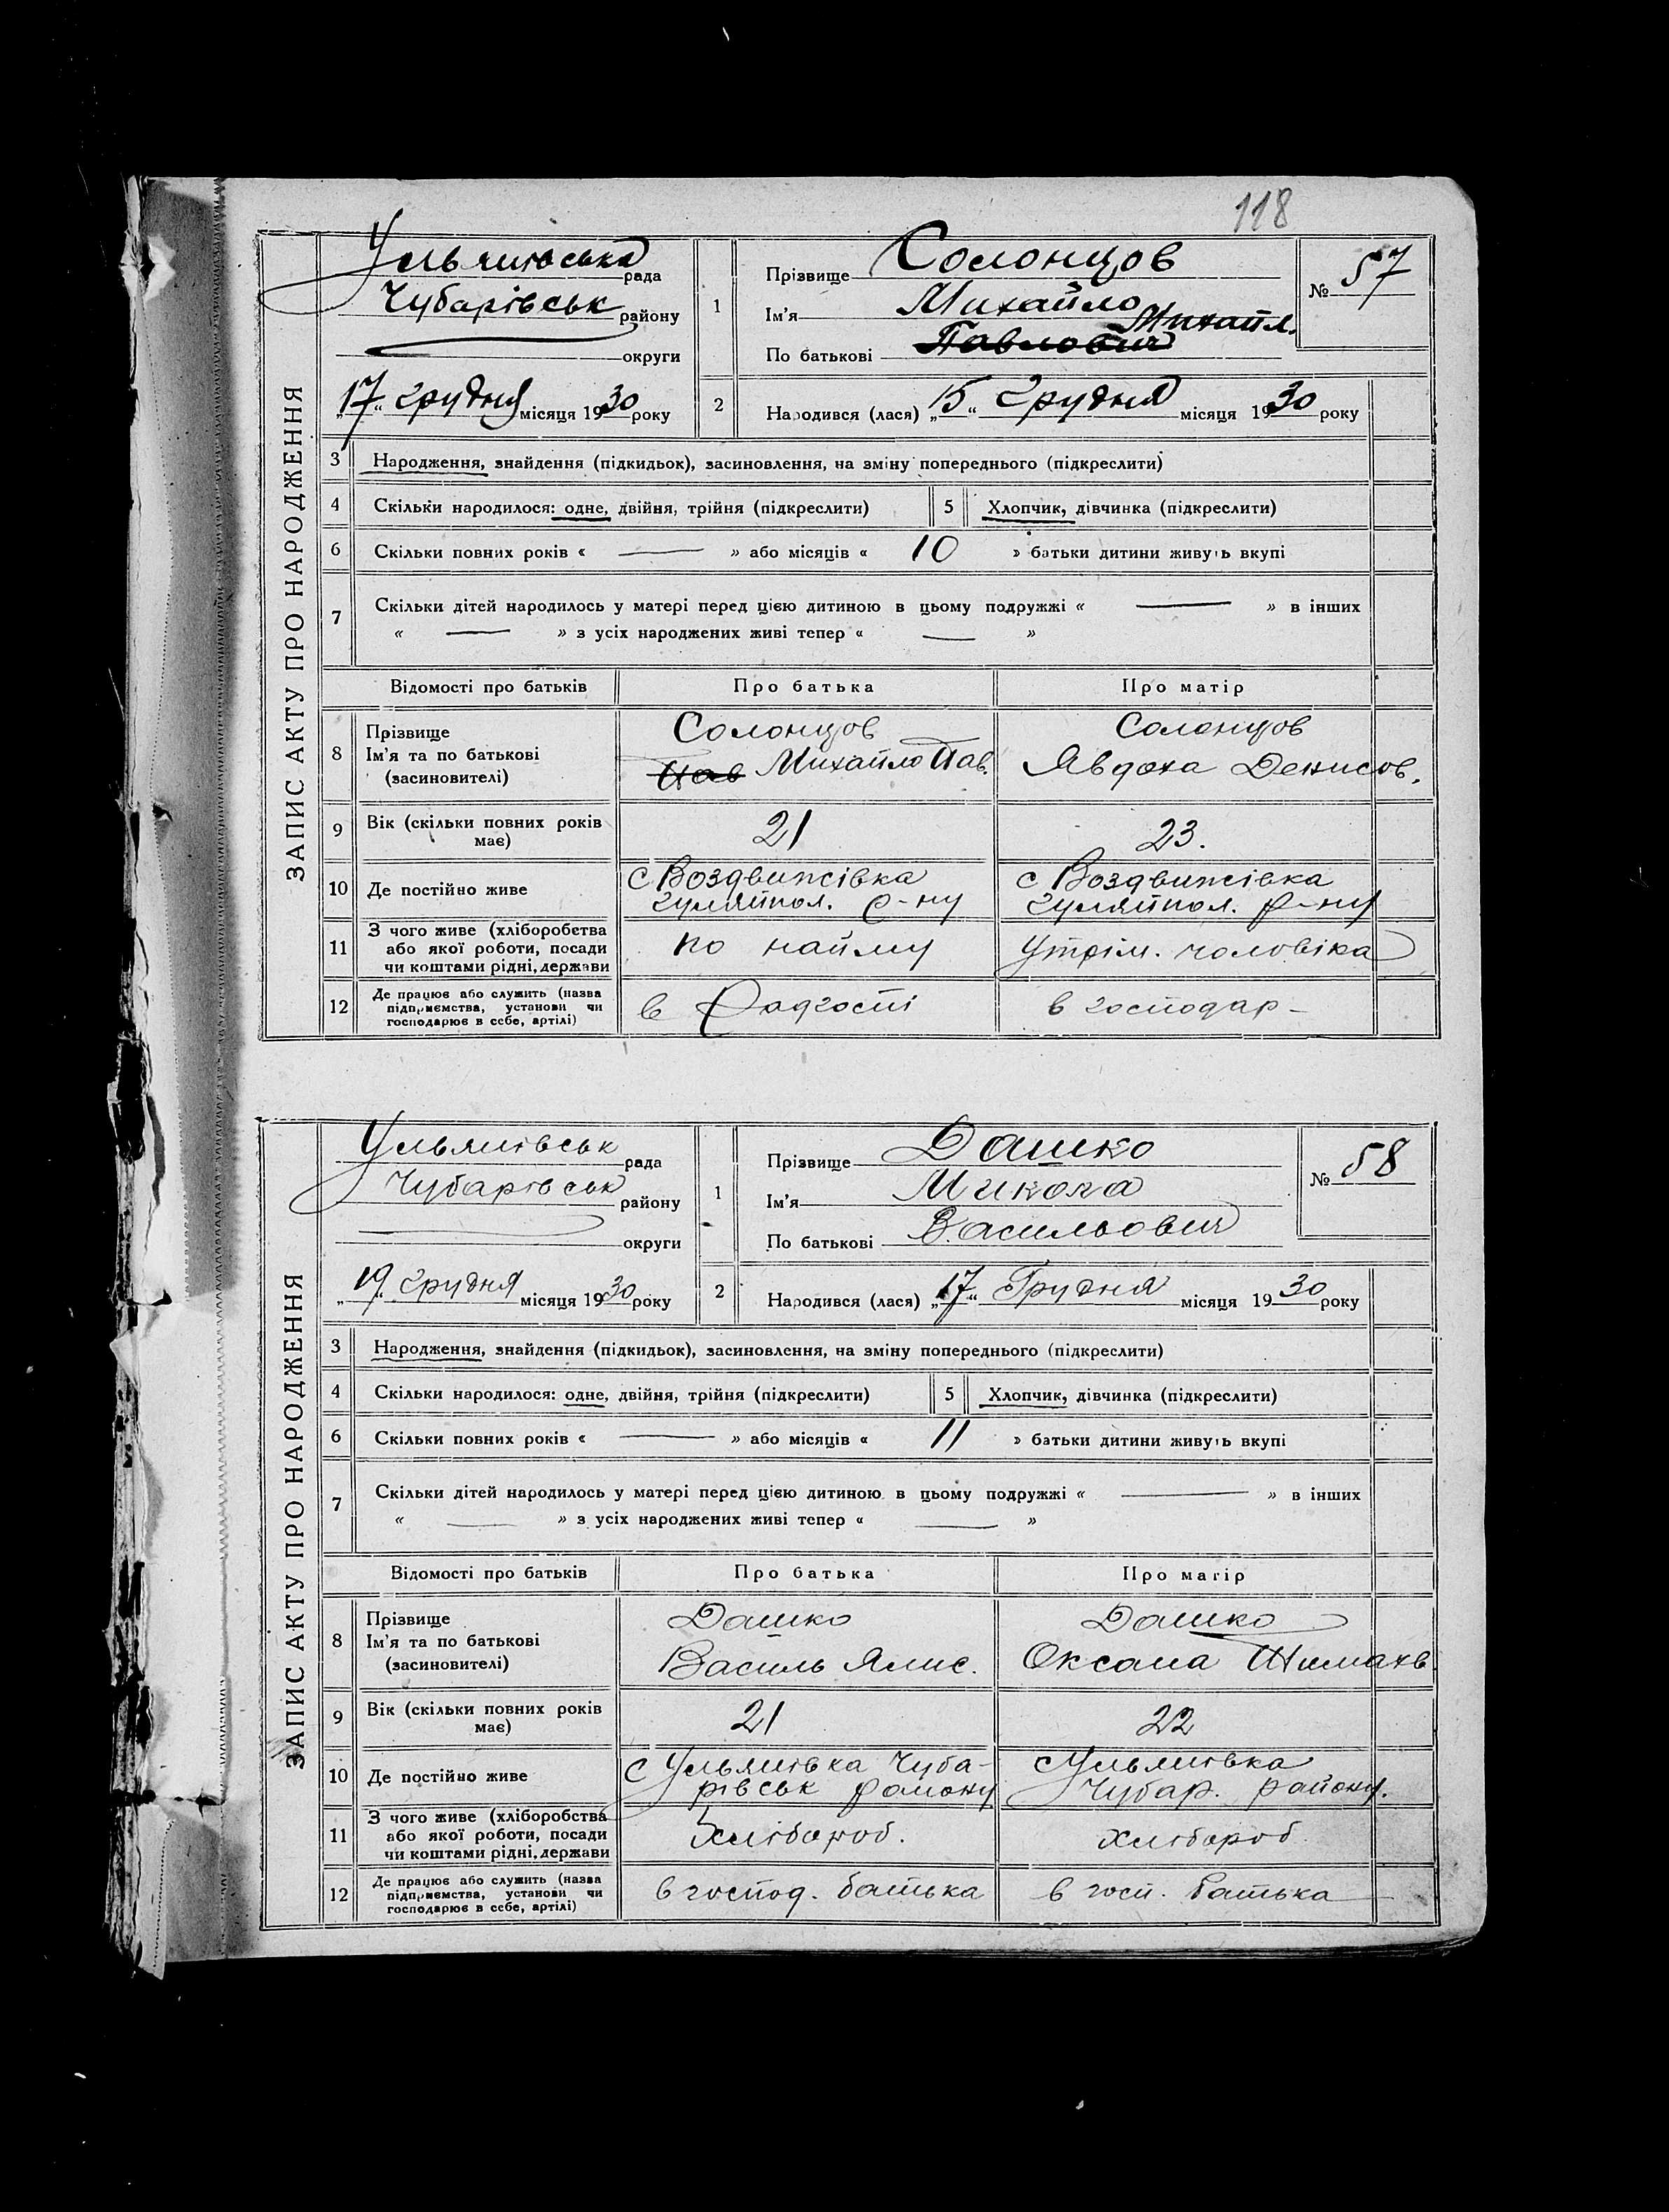 118
ЗАПИС АКТУ ПРО НАРОДЖЕННЯ
Ульянівська рада
Чубарівськ району
округи
„17“ грудня місяця 1930 року
1
Прізвище Солонцов
Ім'я Михайло
По батькові Павлович Михайл.
№ 57
2
Народився (лася) „15“ Грудня місяця 1930 року
3 Народження, знайдення (підкидьок), засиновлення, на зміну попереднього (підкреслити)
4 Скільки народилося: одне, двійня, трійня (підкреслити) 5 Хлопчик, дівчинка (підкреслити)
6 Скільки повних років « — » або місяців « 10 » батьки дитини живуть вкупі
7 Скільки дітей народилось у матері перед цією дитиною в цьому подружжі « — » в інших
« — » з усіх народжених живі тепер « — »
Відомості про батьків Про батька Про матір
8 Прізвище Солонцов Солонцов
Ім'я та по батькові Пав Михайло Пав. Явдоха Денисов.
(засиновителі)
9 Вік (скільки повних років має) 21 23.
10 Де постійно живе с Воздвижівка с Воздвижівка
гуляйпол. р-ну гуляйпол. р-ну
11 З чого живе (хліборобства або якої роботи, посади чи коштами рідні, держави по найму утрім. чоловіка
12 Де працює або служить (назва підприємства, установи чи господарює в себе, артілі) в Радгоспі в господар-
ЗАПИС АКТУ ПРО НАРОДЖЕННЯ
Ульянівськ рада
Чубарівськ району
округи
„19“ грудня місяця 1930 року
1
Прізвище Дашко
Ім'я Микола
По батькові Васильович
№ 58
2
Народився (лася) „17“ Грудня місяця 1930 року
3 Народження, знайдення (підкидьок), засиновлення, на зміну попереднього (підкреслити)
4 Скільки народилося: одне, двійня, трійня (підкреслити) 5 Хлопчик, дівчинка (підкреслити)
6 Скільки повних років « — » або місяців « 11 » батьки дитини живуть вкупі
7 Скільки дітей народилось у матері перед цією дитиною в цьому подружжі « — » в інших
« — » з усіх народжених живі тепер « — »
Відомості про батьків Про батька Про матір
8 Прізвище Дашко Дашко
Ім'я та по батькові Василь Оксана
(засиновителі)
9 Вік (скільки повних років має) 21 22
10 Де постійно живе с Ульянівка Чуба- с Ульянівка
рівськ району Чубар. району.
11 З чого живе (хліборобства або якої роботи, посади чи коштами рідні, держави Хлібороб. хлібороб.
12 Де працює або служить (назва підприємства, установи чи господарює в себе, артілі) в господ. батька в госп. батька